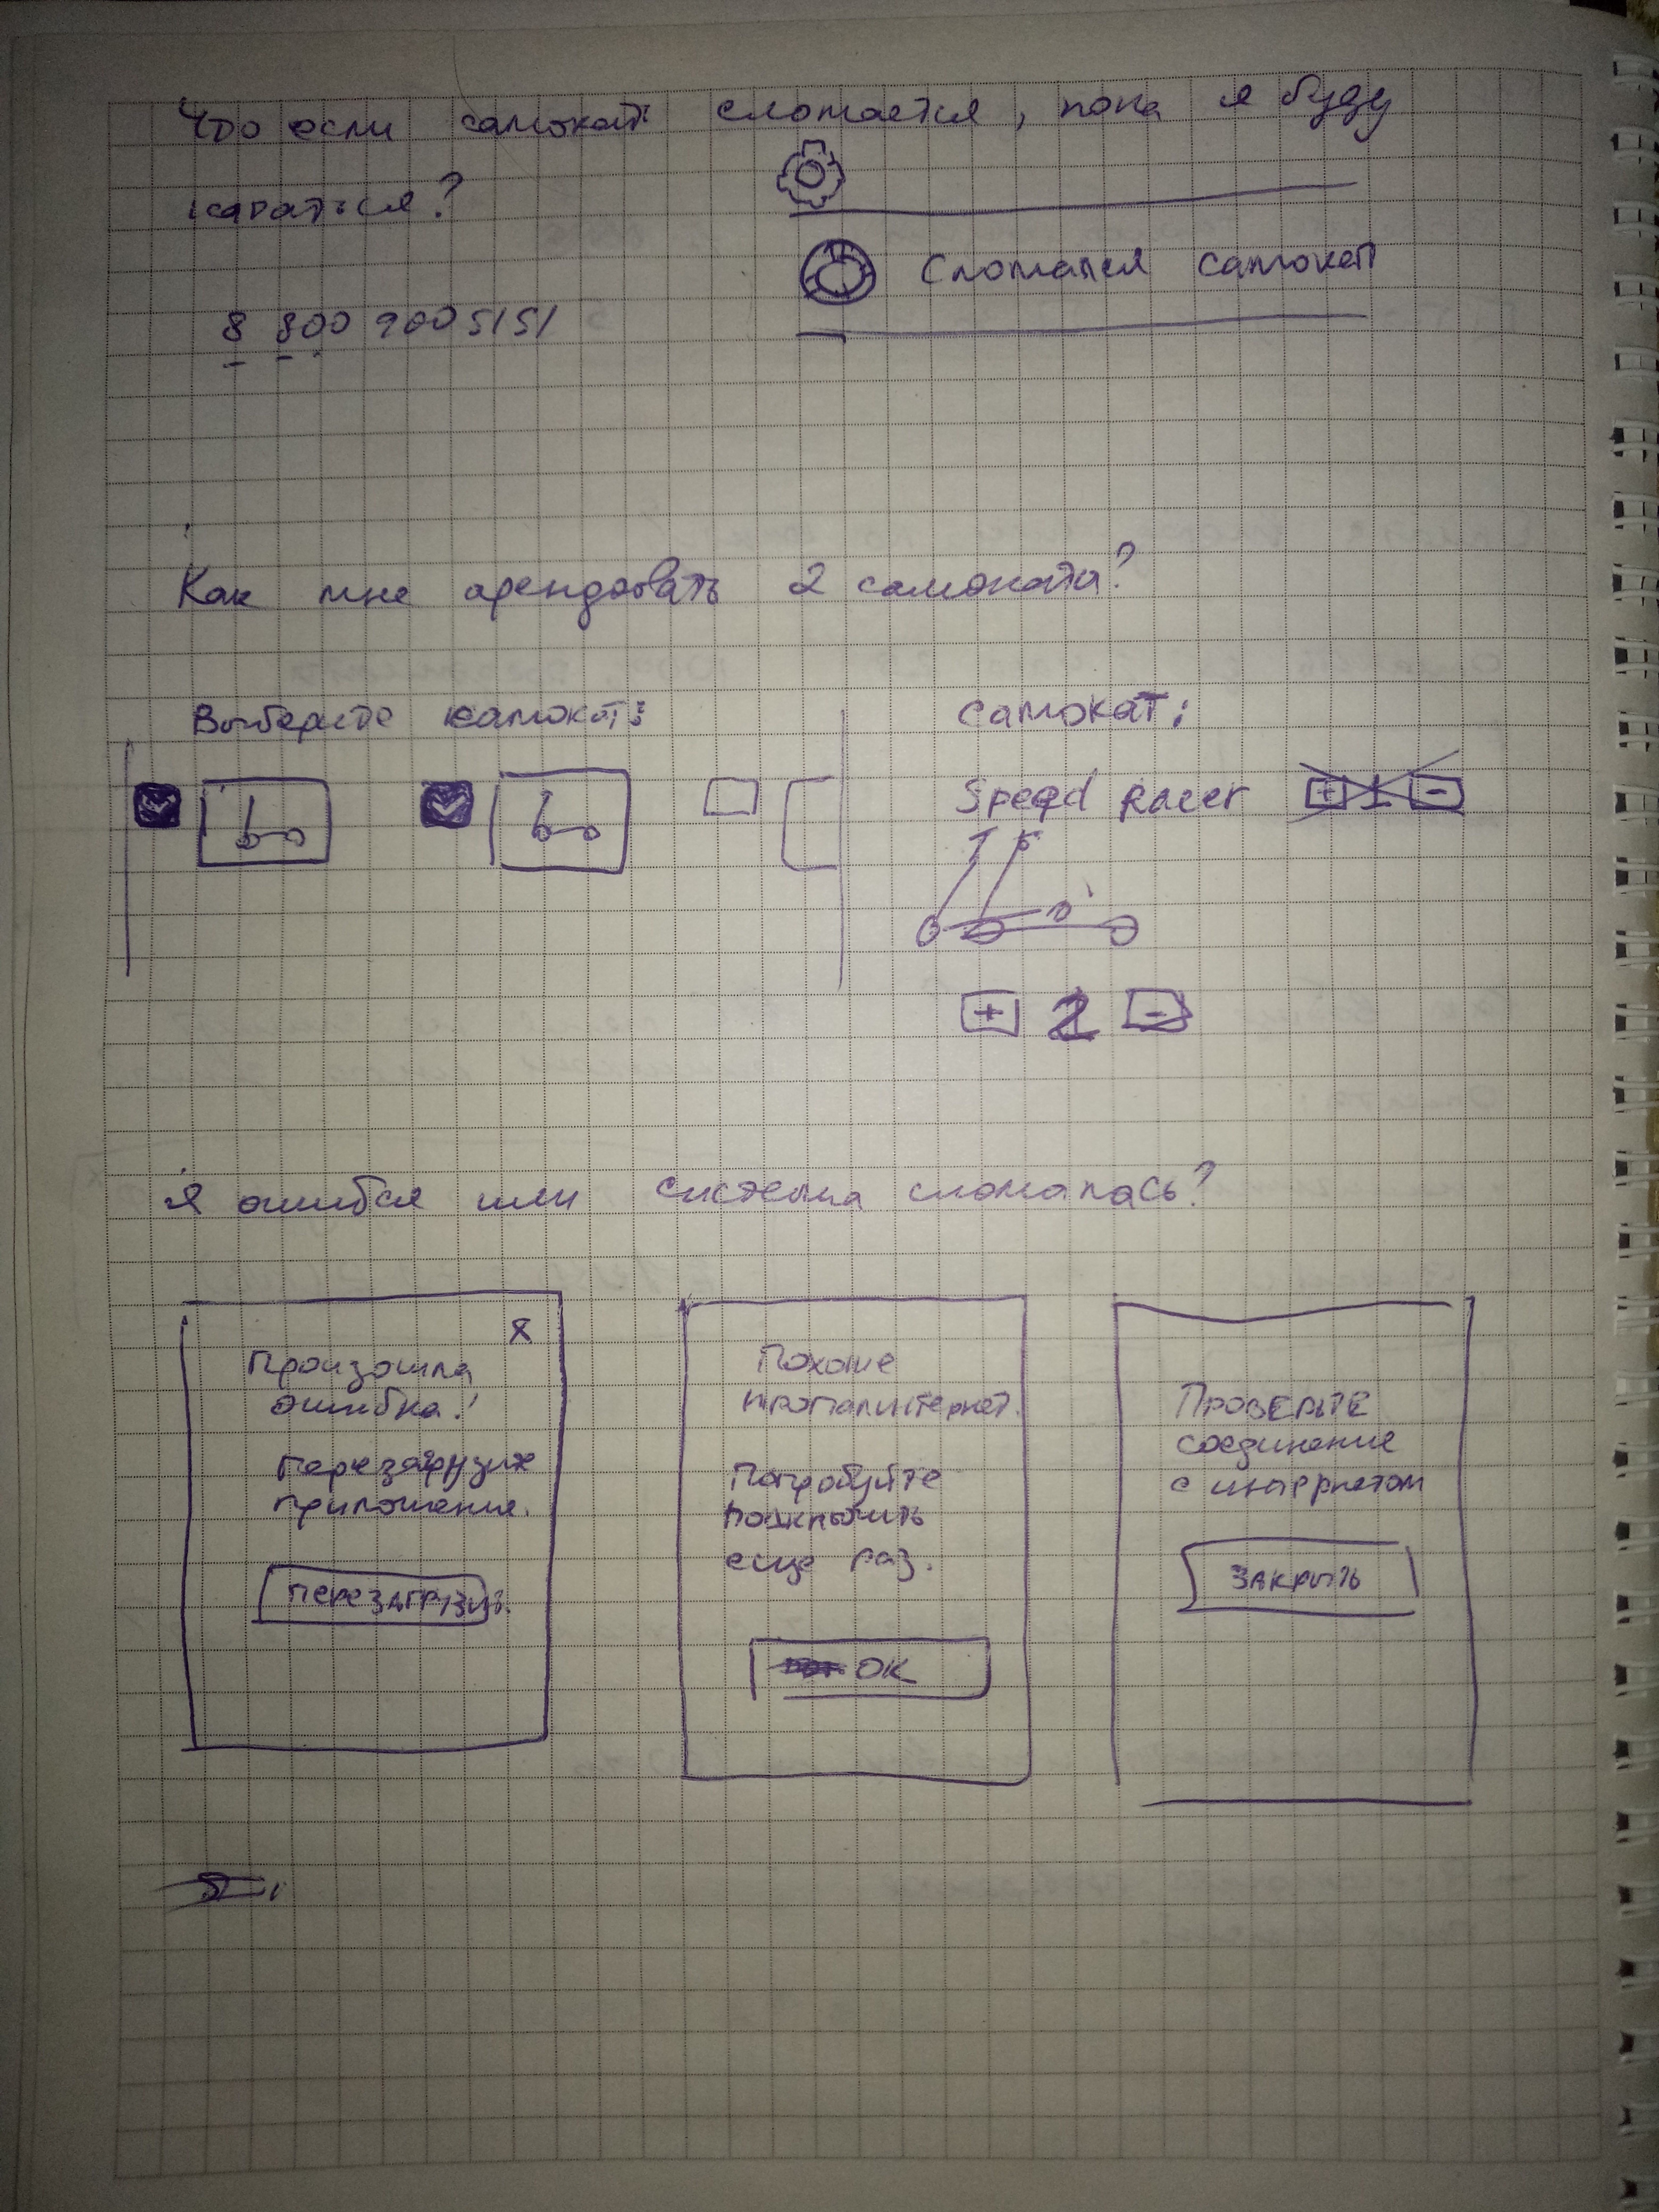 Что если самокат сломается, пока я буду
кататься?
Сломался самокат
8 800 900 5151
Как мне арендовать 2 самоката?
Выберите самокат:
самокат:
Speed Racer + 1 -
+ 2 -
Я ошибся или система сломалась?
x
Произошла
ошибка!
Перезагрузите
приложение.
ПЕРЕЗАГРУЗИТЬ
Похоже
пропал интернет.
Попробуйте
подключить
еще раз.
ОК
ПРОВЕРЬТЕ
соединение
с интернетом
ЗАКРЫТЬ